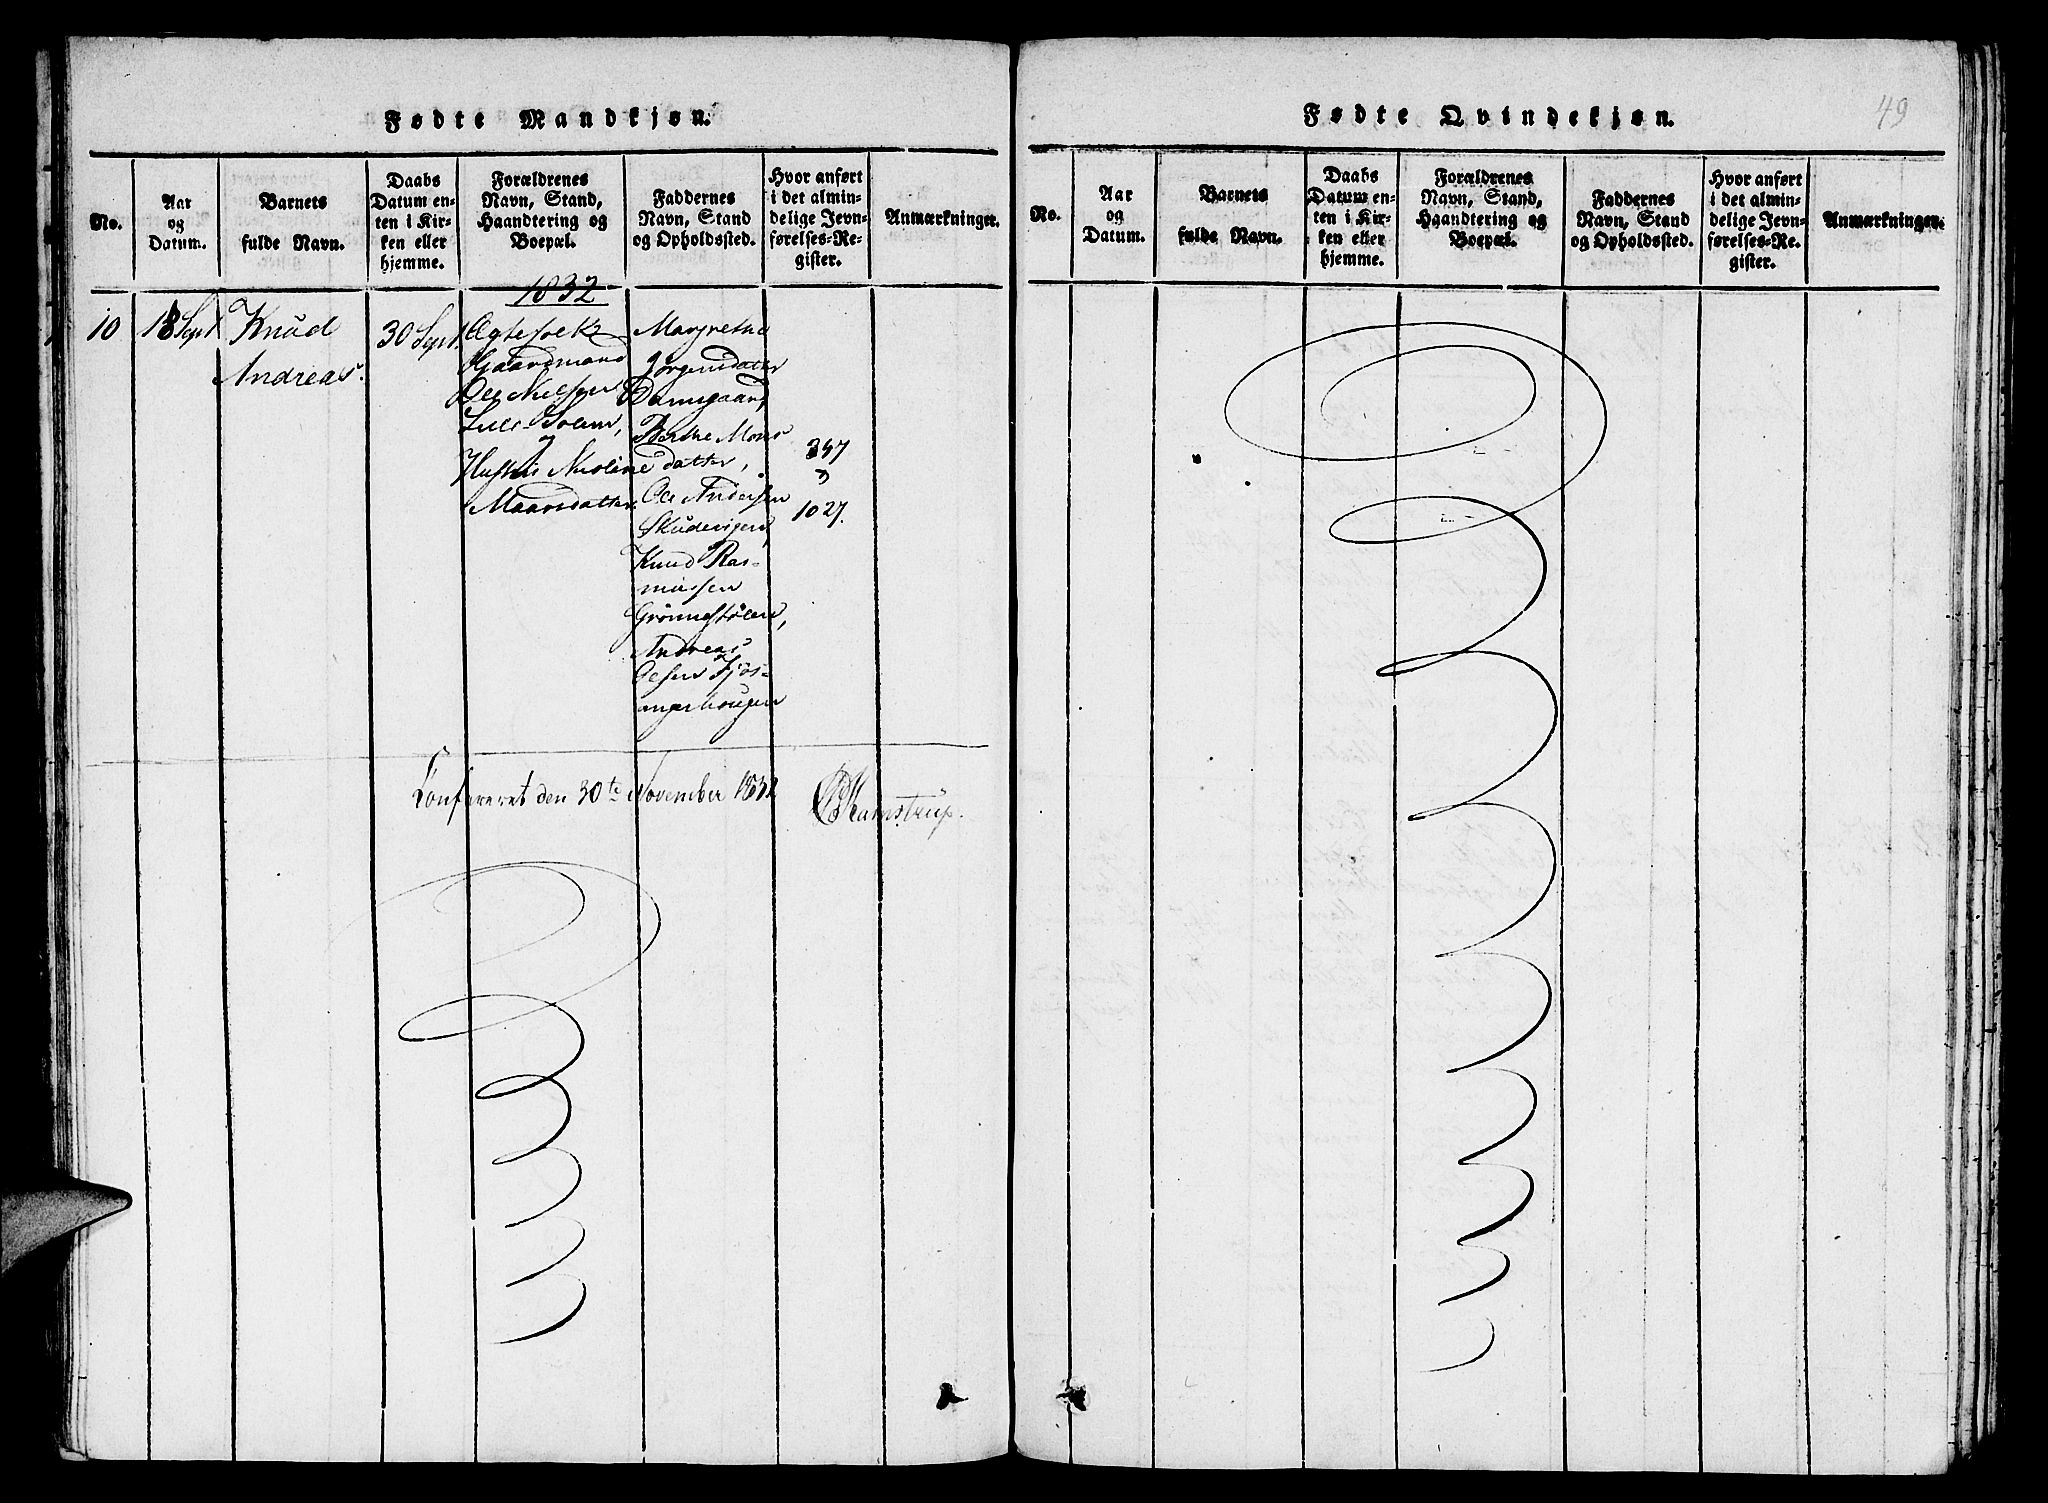 Fødte Mandkjøn.
No.
Aar
og
Datum.
Barnets
fulde Navn.
Daabs
Datum en-
ten i Kir-
ken eller
hjemme.
Forældrenes
Navn, Stand,
Haandtering og
Boepæl.
Faddernes
Navn, Stand
og Opholdssted.
Hvor anført
i det almin-
delige Jevn-
førelses-Re-
gister.
Anmærkninger.
1832
10
18 Sept
Knud
Andreas.
30 Sept.
Ægtefolk
Gaardmand
Ole Nielsen
Lille-Solem,
og
Hustru Nicoline
Maansdatter
Margrethe
Jørgensdatter
Damgaard,
Berthe Mons
datter,
Ole Andersen
Skudevigen,
Knud Ras-
mussen
Grønnestølen,
Andreas
Olsen Fjøs-
angerhougen
347
1027.
Confereret den 30te November 1832
Kamstrup.
Fødte Qvindekjøn.
49
No.
Aar
og
Datum.
Barnets
fulde Navn.
Daabs
Datum en-
ten i Kir-
ken eller
hjemme.
Forældrenes
Navn, Stand,
Haandtering og
Boepæl.
Faddernes
Navn, Stand
og Opholdssted.
Hvor anført
i det almin-
delige Jevn-
førelses-Re-
gister.
Anmærkninger.